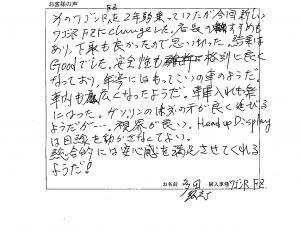 お客様の声
FZ
前のワゴンRを2年効乗っていたが今回新しい
ワゴンRFZにchangeした。店長のすすめも
あり、下取も良かったので思い切った。結果は
Goodでした。安全性も格別に良く
なっており、年寄にはもってこいの車のようだ。
車内も広くなったようだ。車庫入れも楽
になった。ガソリンの方が良く延びる
ようだが…。視界が良い。Head up Display
は目線を動かさなくてよい。
総合的には安心感を満足させてくれる
ようだ!
お名前 多田 購入車種 ワゴンR FZ